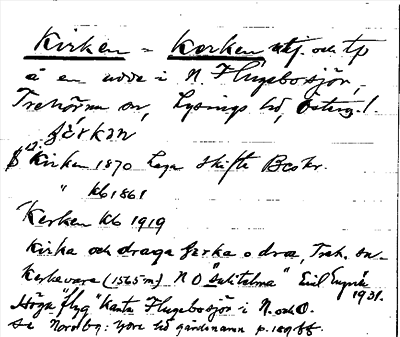 Kirken = Kerken utj. och tp
å en udde i N. Flugebosjön,
Trehörna sn, Lysings hd, Österg.l.
Kirken 1870 Laga skifte Beskr.
" kb 1861
Kerken kb 1919
Kirka och draga Jerka o dra, Treh. sn.
Kerkevare (1565 m) N O "Sulitelma" Emil 1931.
Höga "flyg" kanta Flugebosjön i N. och O.
Se Nordbg: Ydre hd gårdsnamn p. 189 ff